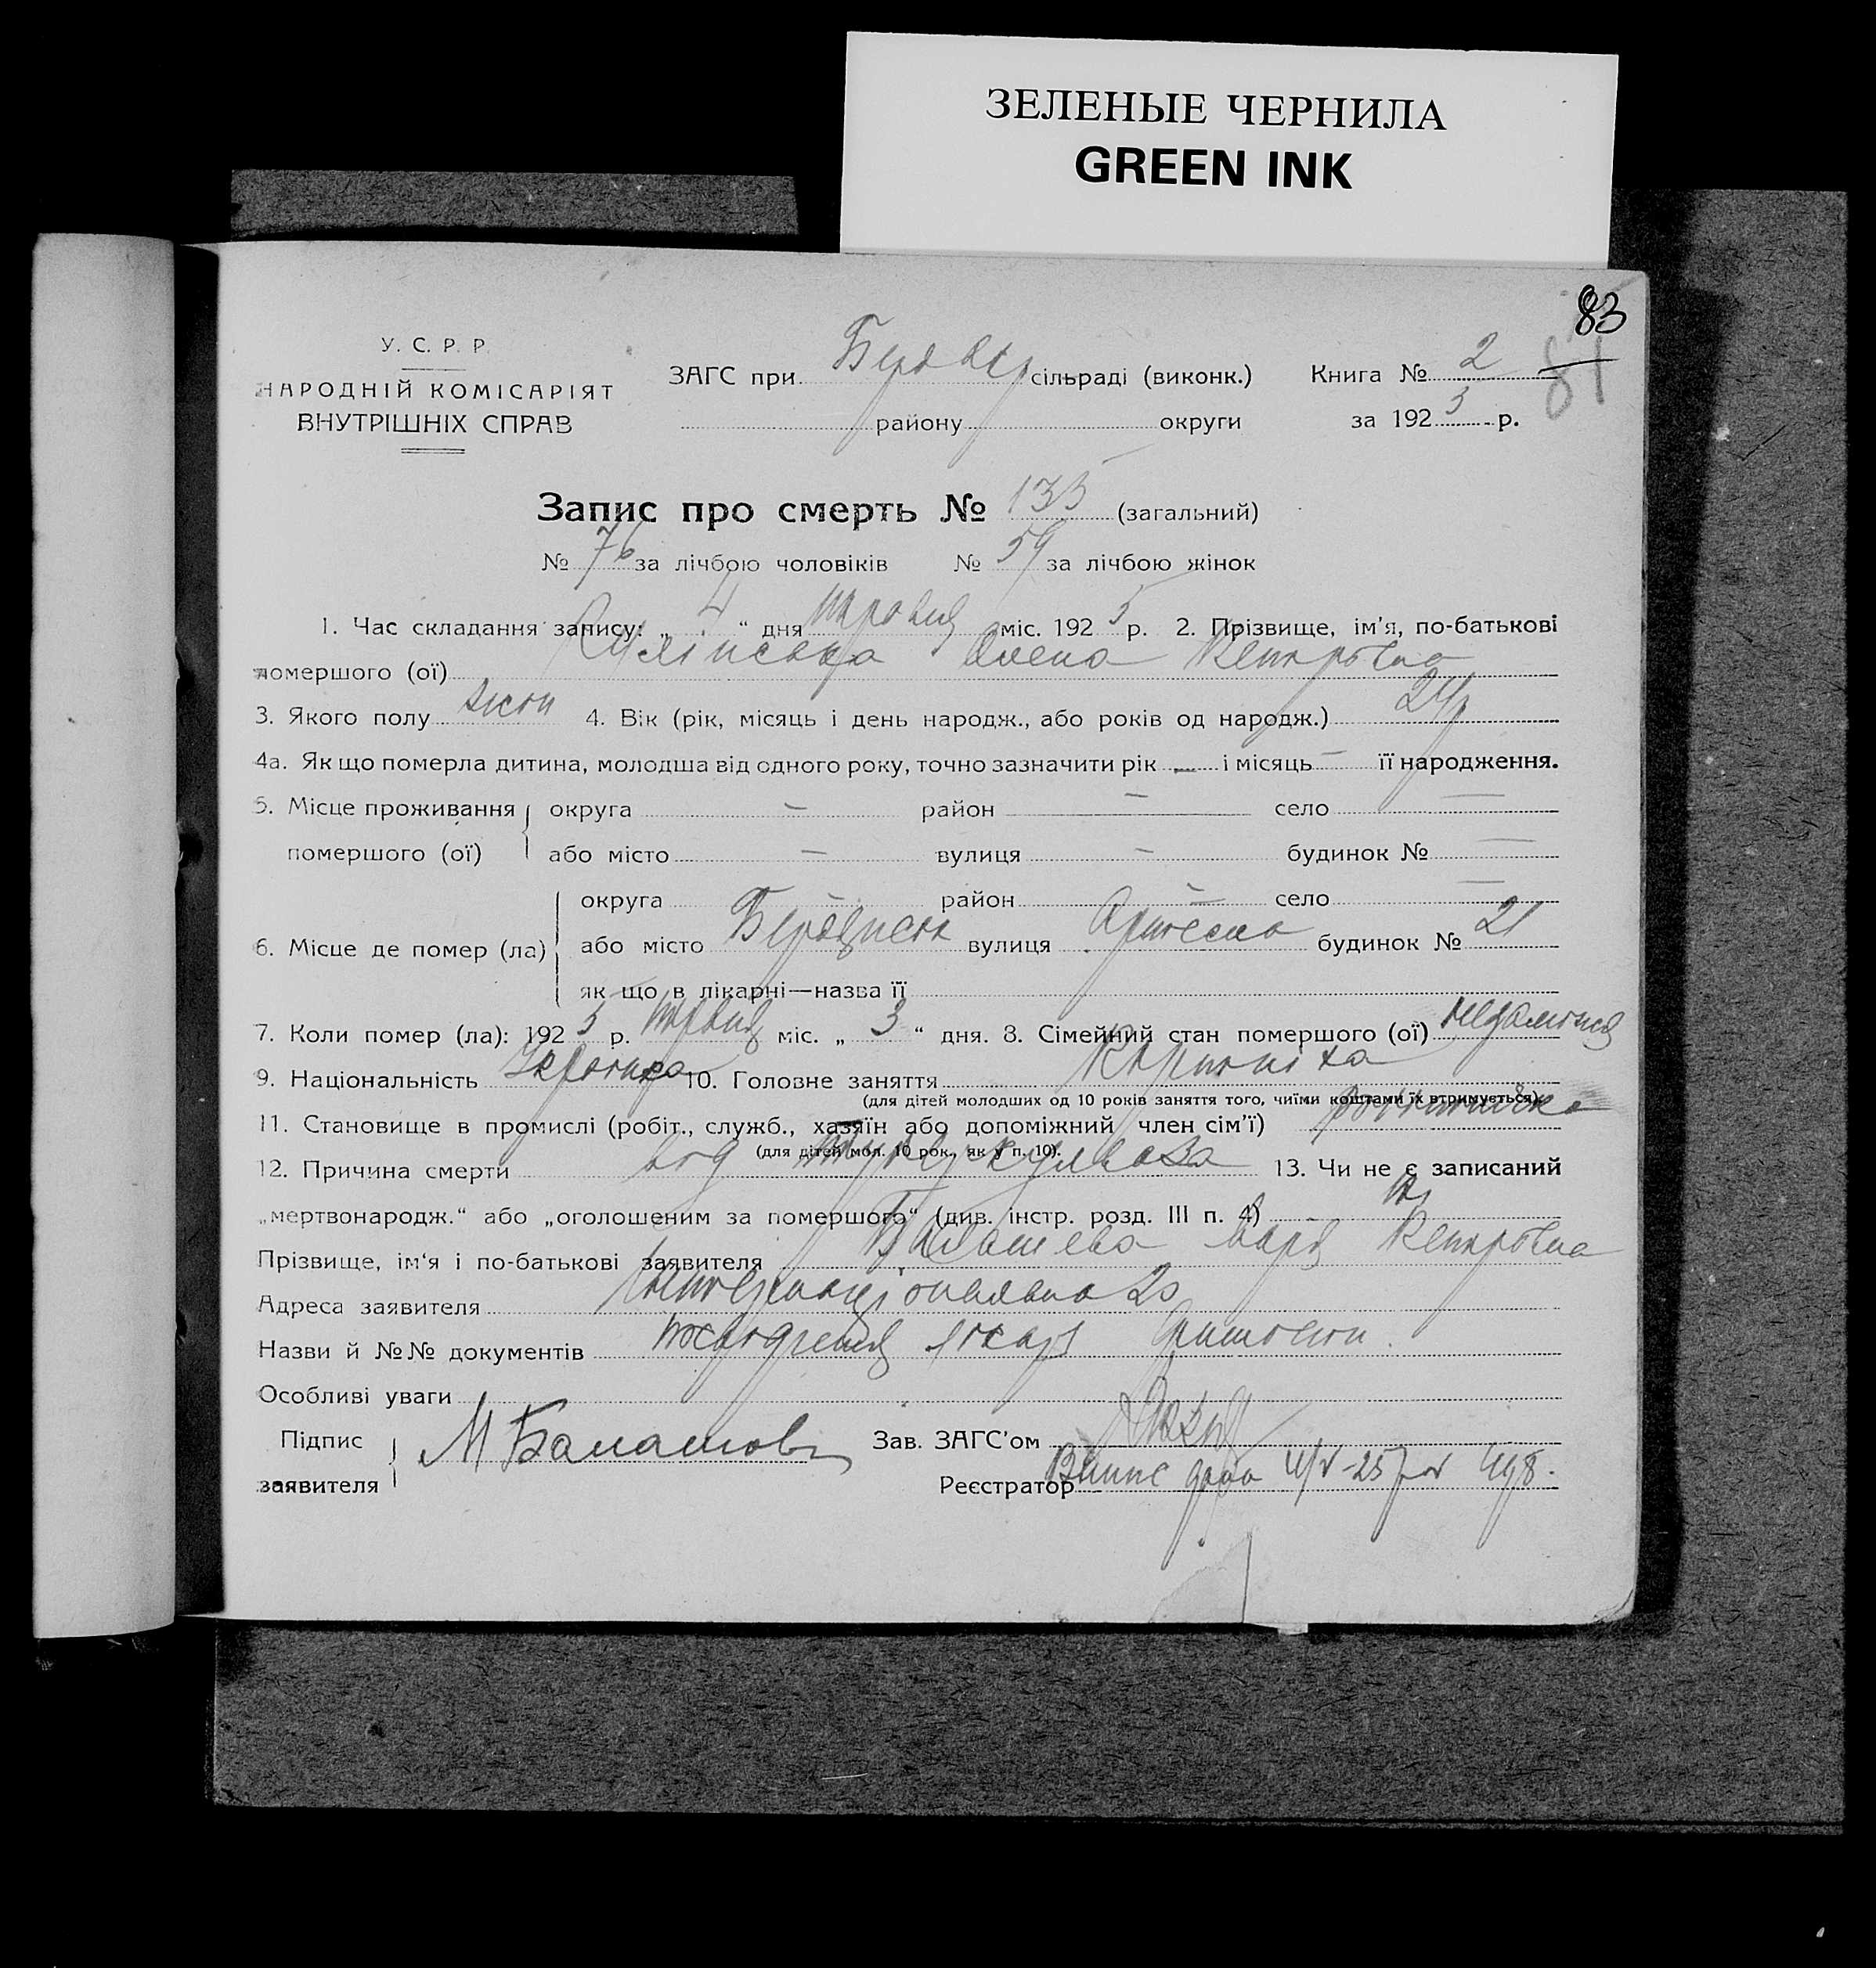 ЗЕЛЕНЫЕ ЧЕРНИЛА
GREEN INK
83
81
У. С. Р. Р.
НАРОДНІЙ КОМІСАРІЯТ
ВНУТРІШНІХ СПРАВ
ЗАГС при сільраді (виконк.) Книга № 2
району округи за 1925 р.
Запис про смерть № 135 (загальний)
№ 76 за лічбою чоловіків № 59 за лічбою жінок
1. Час складання запису: „ 4 “ дня травня міс. 1925 р. 2. Прізвище, ім’я, по-батькові
помершого (ої) Олена Петровна
3. Якого полу жін 4. Вік (рік, місяць і день народж., або років од народж.) 24р
4а. Як що померла дитина, молодша від одного року, точно зазначити рік — і місяць — її народження.
5. Місце проживання округа — район — село —
помершого (ої) або місто — вулиця — будинок № —
округа — район — село —
6. Місце де помер (ла) або місто Бердичев вулиця будинок № 21
як що в лікарні—назва її
7. Коли помер (ла): 1925 р. травня міс. „ 3 “ дня. 8. Сімейний стан помершого (ої)
9. Національність 10. Головне заняття
(для дітей молодших од 10 років заняття того, чиїми коштами їх втримується).
11. Становище в промислі (робіт., служб., хазяїн або допоміжний член сім’ї)
(для дітей мол. 10 рок., як у п. 10).
12. Причина смерти од туберкульоза 13. Чи не є записаний
„мертвонародж.“ або „оголошеним за помершого“ (див. інстр. розд. III п. 4) Ні
Прізвище, ім‘я і по-батькові заявителя Балашева Марія Петровна
Адреса заявителя Інтернаціональна 20
Назви й №№ документів посвідчення лікаря
Особливі уваги
Підпис М Балашова Зав. ЗАГС’ом
заявителя Реєстратор Випис дана 4/V-25р